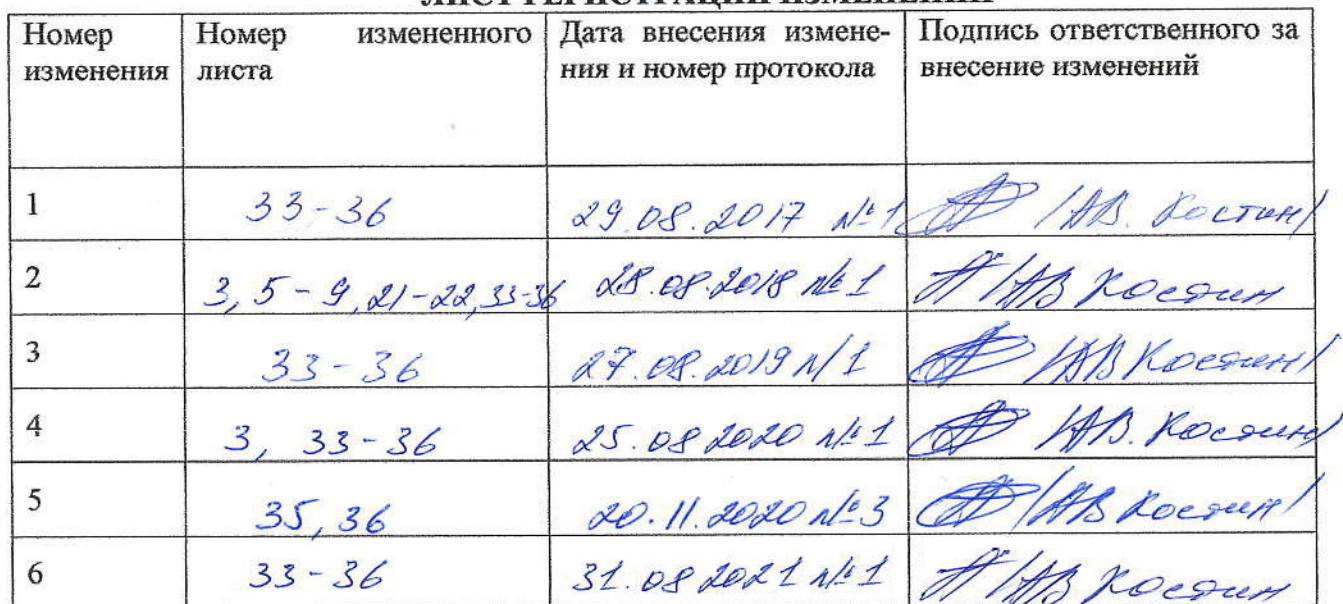 ЛИСТ РЕГИСТРАЦИИ ИЗМЕНЕНИЙ
Номер изменения
Номер измененного листа
Дата внесения измене-
ния и номер протокола
Подпись ответственного за
внесение изменений
1 33-36 29.08.2017 №1 /А.В. Костин/
2 3, 5-9, 21-22, 33-36 28.08.2018 №1 /АВ Костин
3 33-36 27.08.2019 №1 /АВ Костин/
4 3, 33-36 25.08 2020 №1 /АВ. Костин/
5 35, 36 20.11.2020 №3 /АВ Костин/
6 33-36 31.08 2021 №1 /АВ Костин